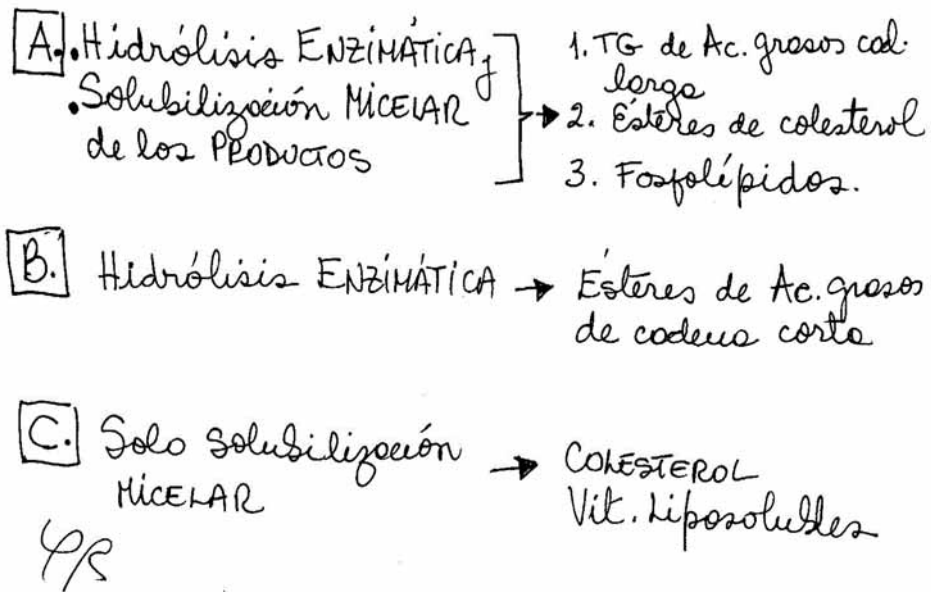 A. . Hidrólisis ENZIMÁTICA y
. Solubilización MICELAR
de los PRODUCTOS
1. TG de Ac. grasos cad.
larga
2. Ésteres de colesterol
3. Fosfolípidos.
B. Hidrólisis ENZIMÁTICA → Ésteres de Ac. grasos
de cadena corta
C. Solo solubilización
MICELAR → COLESTEROL
Vit. Liposolubles